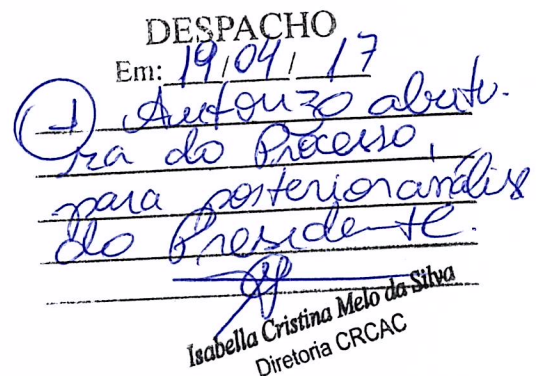 DESPACHO
Em: 19/04/17
1 Autorizo abertu-
ra do Processo,
para posterior análise
do Presidente.
Isabella Cristina Melo da Silva
Diretoria CRCAC